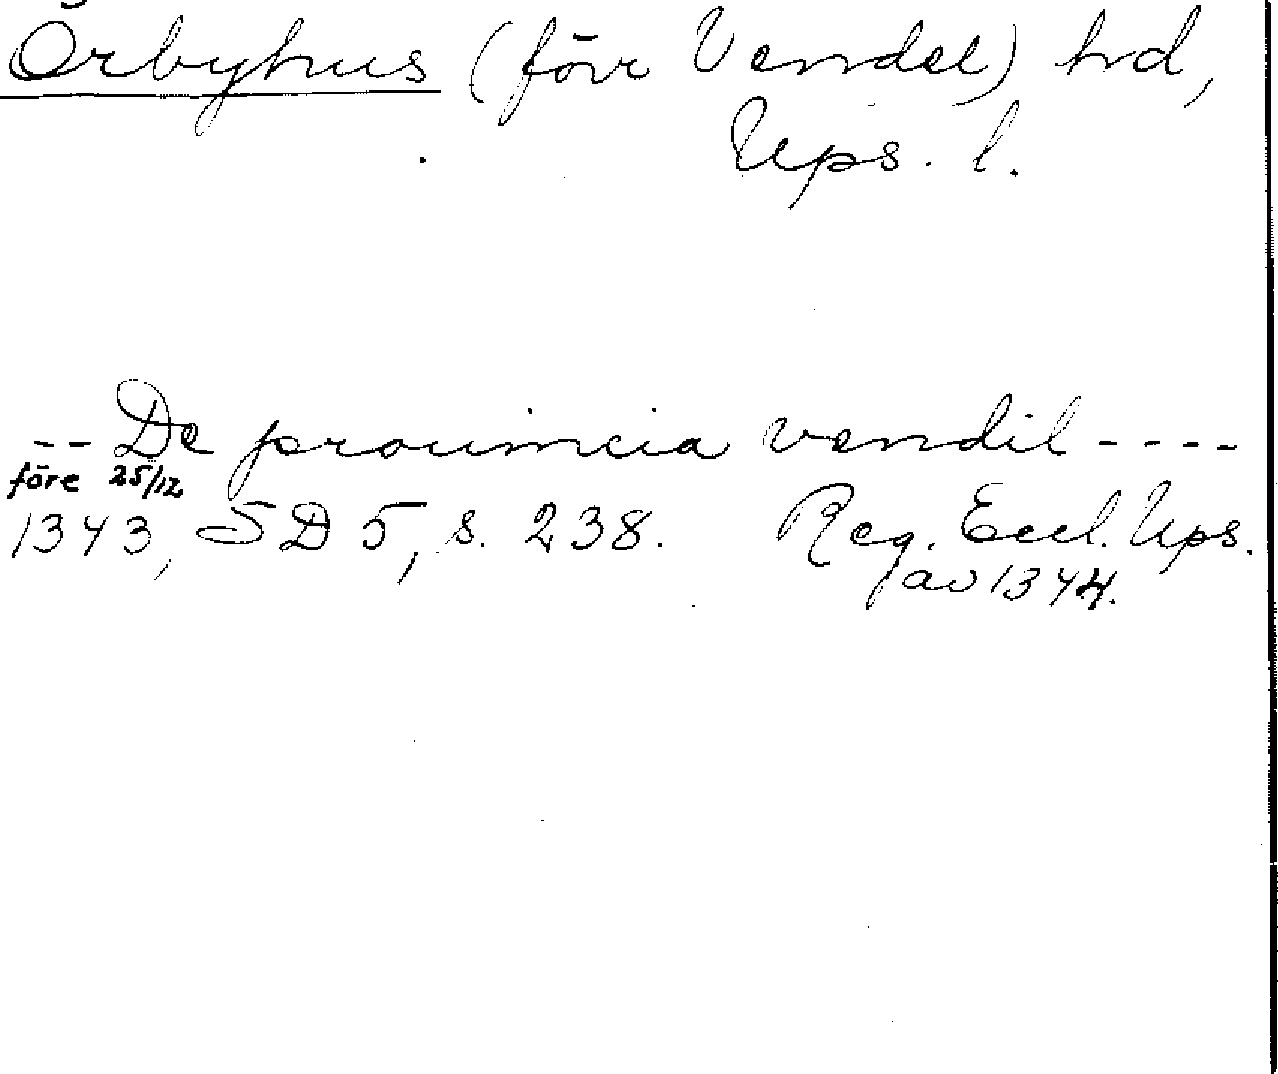 Örbyhus (förr Vendel) hd,
Ups. l.
-- De prouincia vendil ----
före 25/12
1343, SD 5, s. 238. Reg. Eccl. Ups.
av 1344.